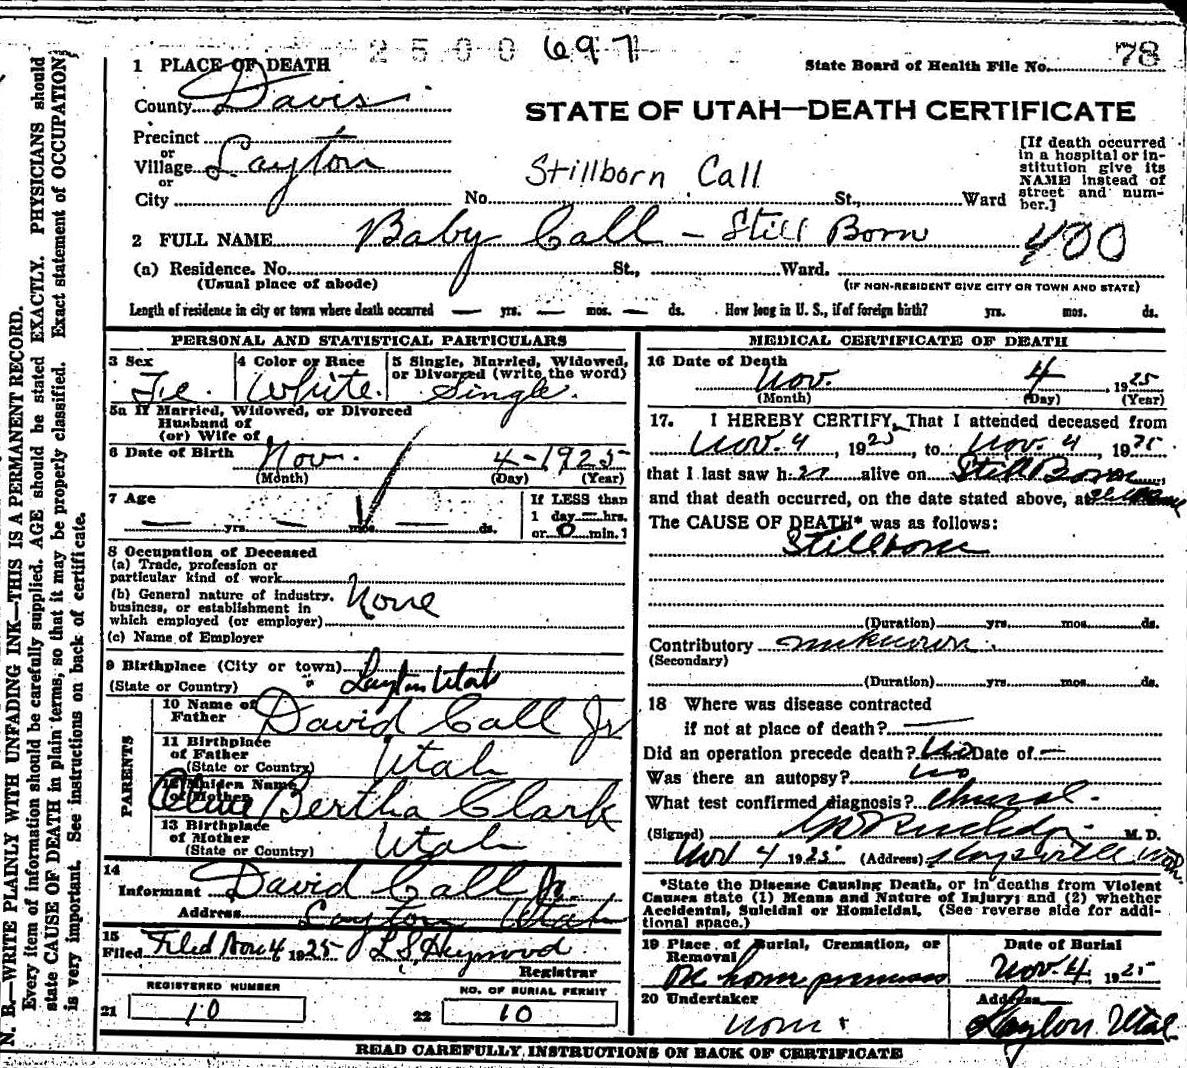 2500 697
78
1 PLACE OF DEATH
State Board of Health File No.
County Davis
STATE OF UTAH—DEATH CERTIFICATE
Precinct
or
Village Layton
or
City
Stillborn Call
No. St., Ward
[If death occurred
in a hospital or in-
stitution give its
NAME instead of
street and num-
ber.]
2 FULL NAME Baby Call - Still Born
400
(a) Residence. No. St., Ward.
(Usual place of abode)
(IF NON-RESIDENT GIVE CITY OR TOWN AND STATE)
Length of residence in city or town where death occurred — yrs. — mos. — ds. How long in U. S., if of foreign birth? yrs. mos. ds.
PERSONAL AND STATISTICAL PARTICULARS
3 Sex Fe.
4 Color or Race White.
5 Single, Married, Widowed,
or Divorced (write the word)
Single.
5a If Married, Widowed, or Divorced
Husband of
(or) Wife of
6 Date of Birth Nov. 4-1925
(Month) (Day) (Year)
7 Age
— yrs. — mos. — ds.
If LESS than
1 day — hrs.
or 0 min.?
8 Occupation of Deceased
(a) Trade, profession or
particular kind of work
(b) General nature of industry,
business, or establishment in
which employed (or employer)
None
(c) Name of Employer
9 Birthplace (City or town) Layton Utah
(State or Country)
PARENTS
10 Name of
Father David Call Jr
11 Birthplace
of Father
(State or Country) Utah
12 Maiden Name
of Mother Bertha Clark
13 Birthplace
of Mother
(State or Country) Utah
14
Informant David Call Jr.
Address Layton Utah
15
Filed Filed Nov 4 1925 L S Heywood
Registrar
REGISTERED NUMBER
21 10
NO. OF BURIAL PERMIT
22 10
MEDICAL CERTIFICATE OF DEATH
16 Date of Death
Nov. 4, 1925
(Month) (Day) (Year)
17. I HEREBY CERTIFY, That I attended deceased from
Nov. 4, 1925, to Nov. 4, 1925
that I last saw h er alive on Still Born,
and that death occurred, on the date stated above, at
The CAUSE OF DEATH* was as follows:
Stillborn
(Duration) yrs. mos. ds.
Contributory unknown.
(Secondary)
(Duration) yrs. mos. ds.
18 Where was disease contracted
if not at place of death? —
Did an operation precede death? No Date of —
Was there an autopsy? No
What test confirmed diagnosis?
(Signed) M. D.
Nov 4 1925 (Address) Kaysville Utah.
*State the Disease Causing Death, or in deaths from Violent
Causes state (1) Means and Nature of Injury; and (2) whether
Accidental, Suicidal or Homicidal. (See reverse side for addi-
tional space.)
19 Place of Burial, Cremation, or
Removal
On home premises
Date of Burial
Nov. 4, 1925
20 Undertaker
none
Address
Layton Utah
READ CAREFULLY INSTRUCTIONS ON BACK OF CERTIFICATE
N. B.—WRITE PLAINLY WITH UNFADING INK—THIS IS A PERMANENT RECORD.
Every item of information should be carefully supplied. AGE should be stated EXACTLY. PHYSICIANS should
state CAUSE OF DEATH in plain terms, so that it may be properly classified. Exact statement of OCCUPATION
is very important. See instructions on back of certificate.